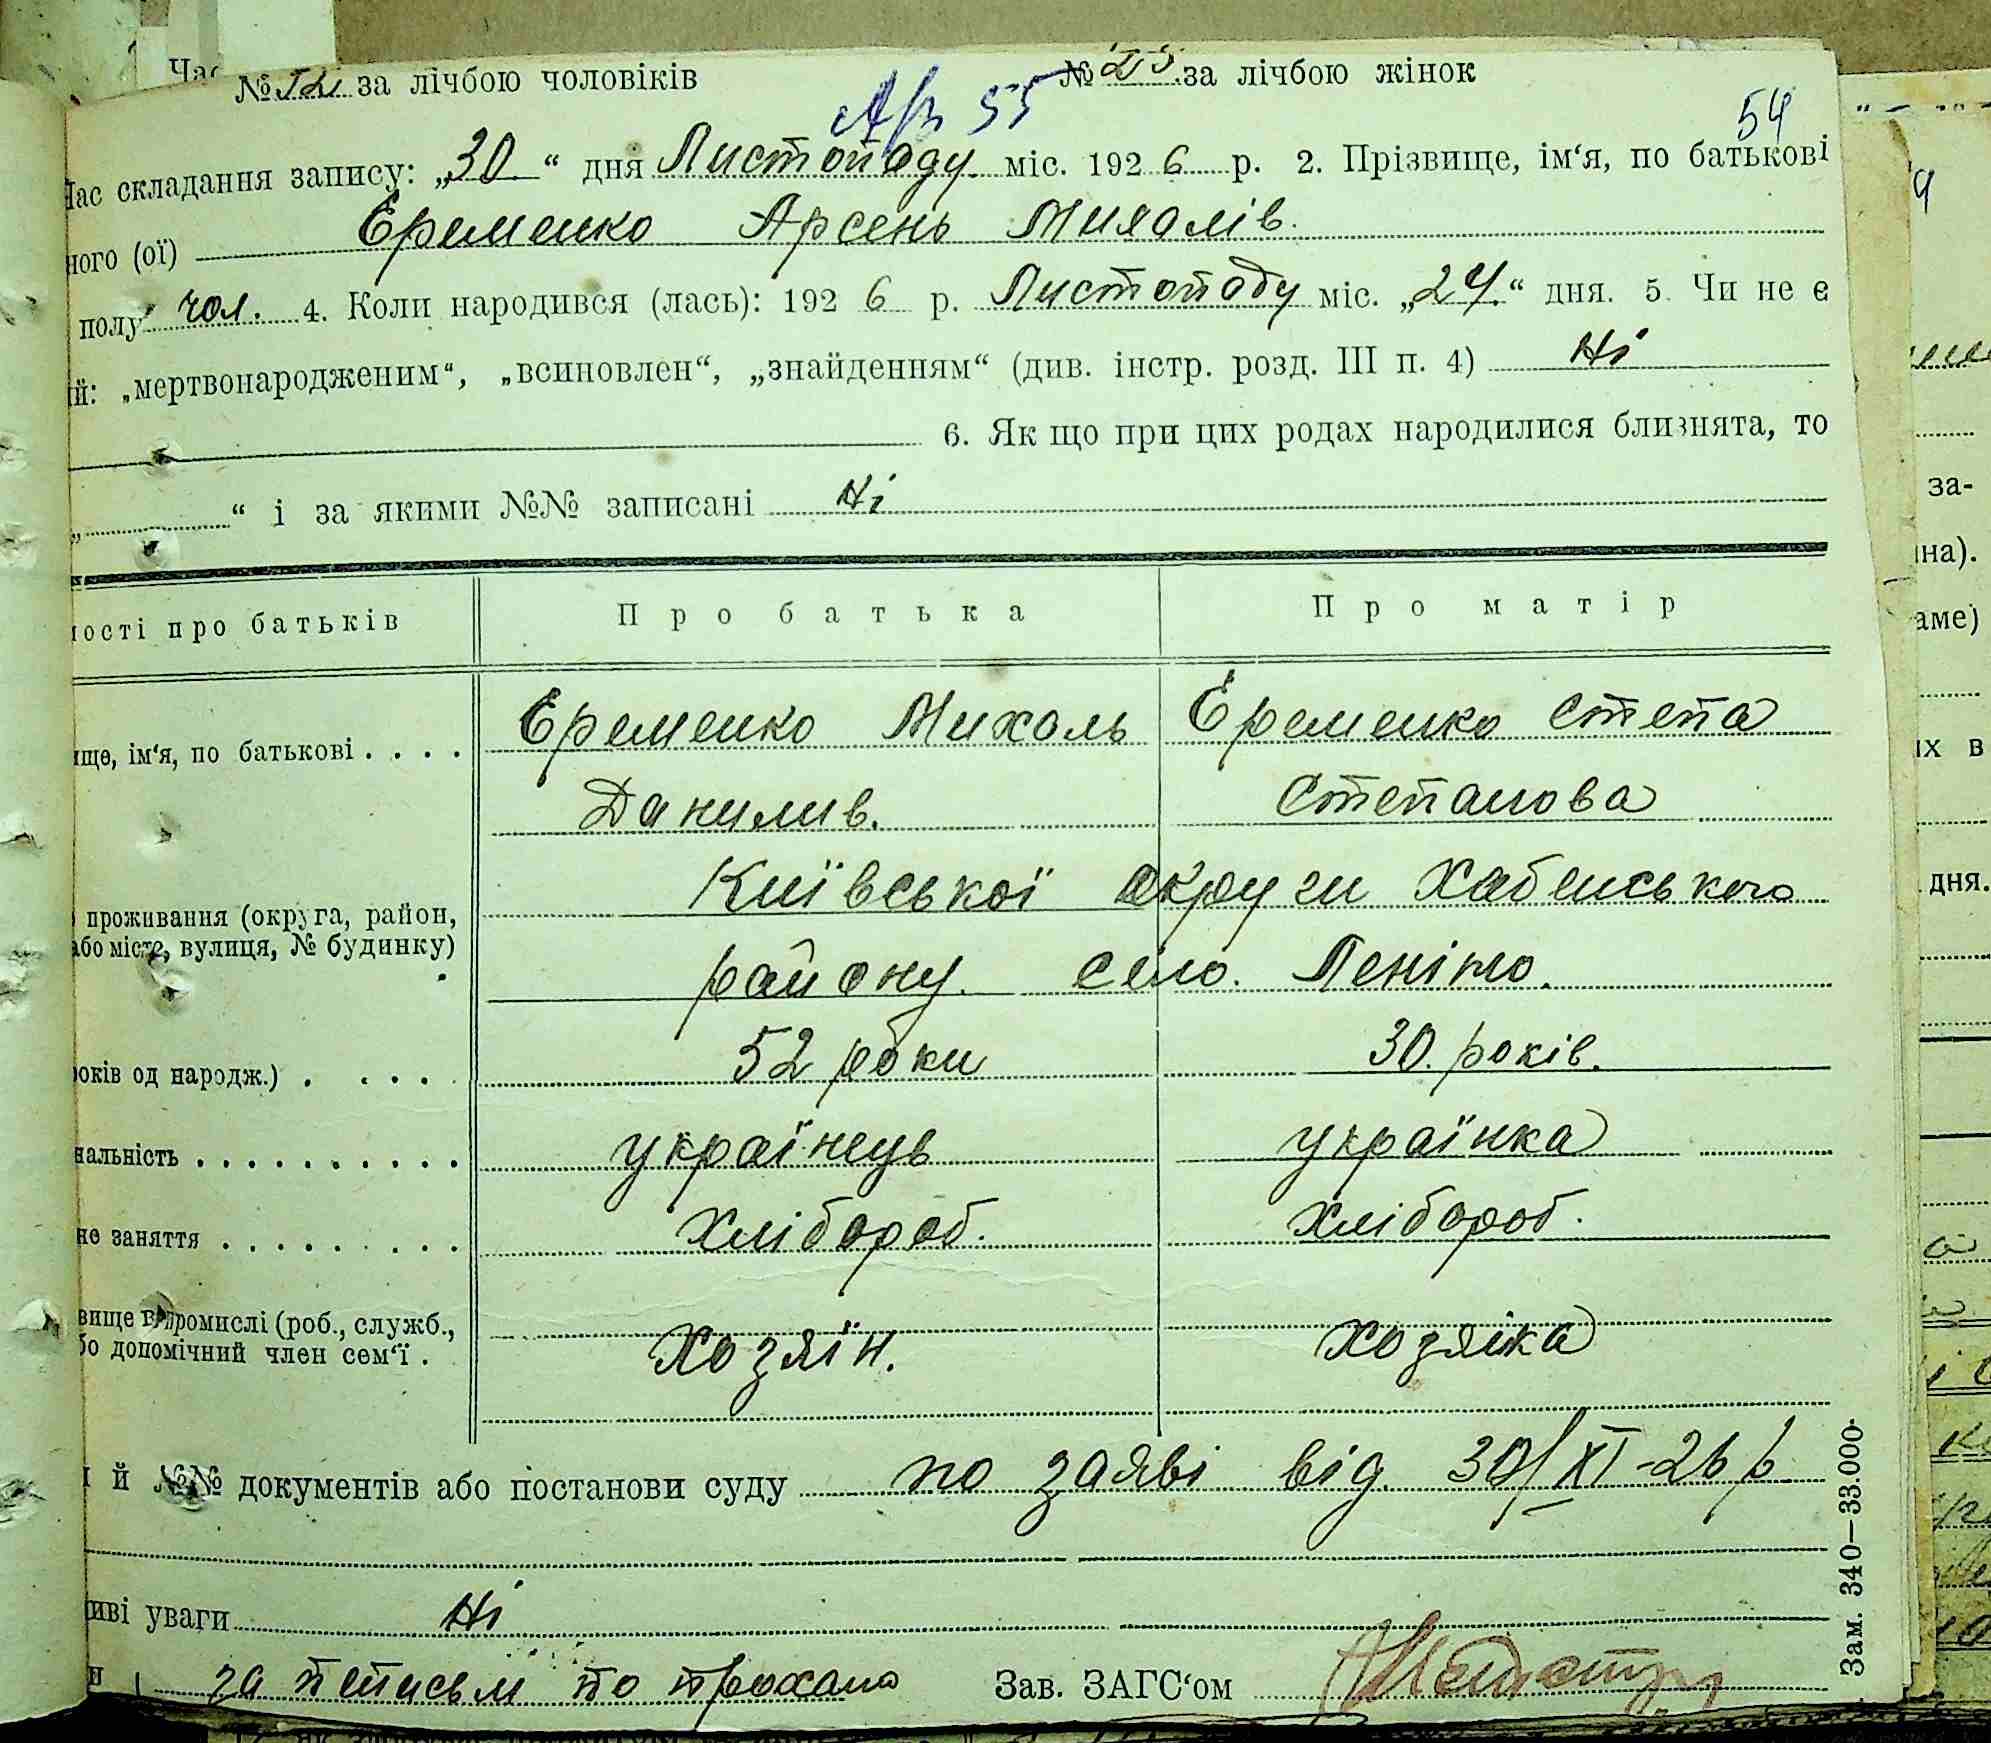 Час
№ 12 за лічбою чоловіків № за лічбою жінок
55
54
Час складання запису: „30“ дня Листопаду міс. 1926 р. 2. Прізвище, ім‘я, по батькові
ного (ої) Єременко Арсень Михалів.
полу чол. 4. Коли народився (лась): 1926 р. Листопаду міс. „24.“ дня. 5. Чи не є
ий: „мертвонародженим“, „всиновлен“, „знайденням“ (див. інстр. розд. III п. 4) Ні
6. Як що при цих родах народилися близнята, то
„ “ і за якими №№ записані Ні
мості про батьків Про батька Про матір
ище, ім‘я, по батькові . . . . Єременко Михаль Єременко Степа
Данилив. Степанова
проживання (округа, район, Київської округи Хабенського
або місто, вулиця, № будинку) району. село.
років од народж.) . . . . . 52 роки 30. років.
нальність . . . . . . . . . . українець українка
не заняття . . . . . . . . . Хлібороб. Хлібороб.
вище в промислі (роб., служб.,
бо допомічний член сем‘ї . Хозяїн. Хозяіка
й №№ документів або постанови суду по заяві від 30/XI-26 р.
иві уваги Ні
за по прохано Зав. ЗАГС‘ом
Зам. 340—33.000.
за-
на).
аме)
их в
дня.